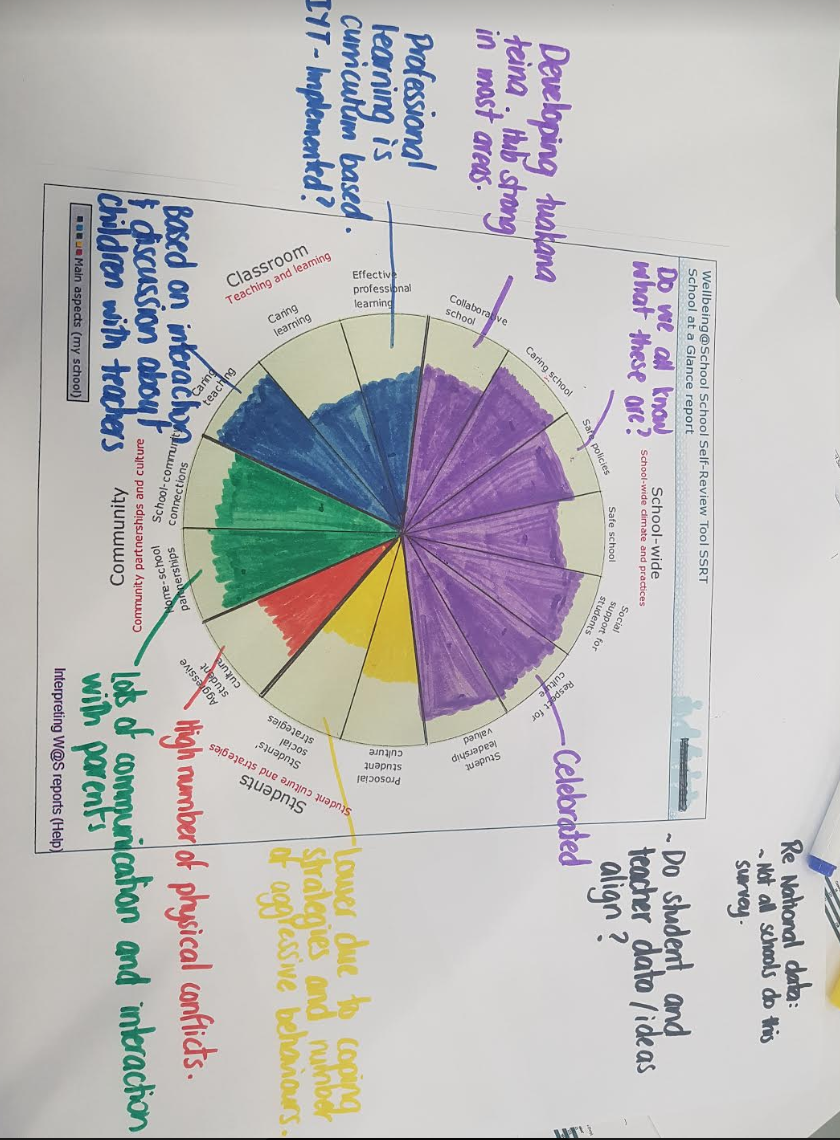 Re National data:
~ Not all schools do this
survey.
Wellbeing@School School Self-Review Tool SSRT
School at a Glance report
Do we all know
what these are?
School-wide
School-wide climate and practices
~ Do student and
teacher data/ideas
align?
Developing tuakana
teina. Hub strong
in most areas.
Professional
learning is
curriculum based.
IYT - Implemented?
Collaborative
school
Caring school
Safe policies
Safe school
Social
support for
students
Respect for
culture
Celebrated
Student
leadership
valued
Classroom
Teaching and learning
Effective
professional
learning
Caring
learning
Caring
teaching
Based on interaction
& discussion about
children with teachers
Prosocial
student
culture
Students'
social
strategies
Students
Student culture and strategies
Lower due to coping
strategies and number
of aggressive behaviours.
Aggressive
student
culture
High number of physical conflicts.
School-community
connections
Home-school
partnerships
Community
Community partnerships and culture
Lots of communication and interaction
with parents
Main aspects (my school)
Interpreting W@S reports (Help)